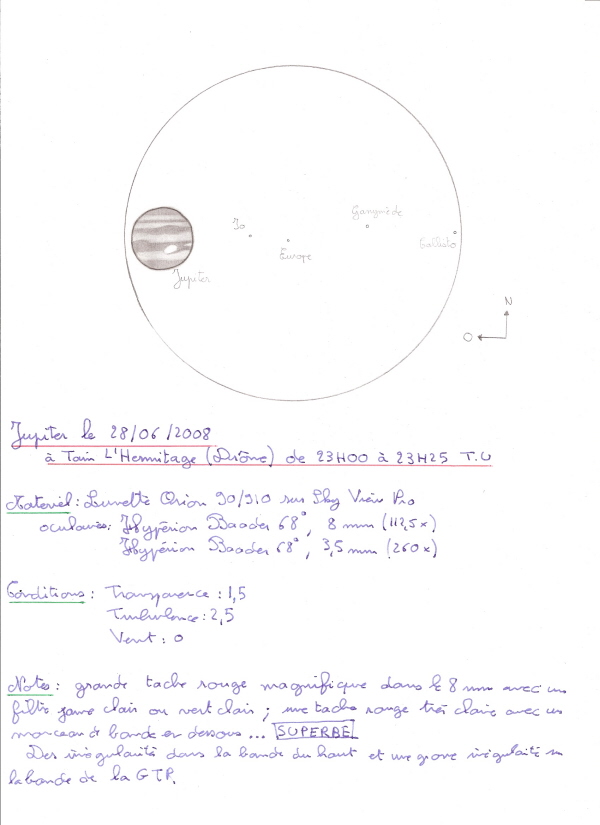 Io
Ganymède
Europe
Callisto
Jupiter
N
O
Jupiter le 28/06/2008
à Tain L'Hermitage (Drôme) de 23H00 à 23H25 T.U
Matériel: Lunette Orion 90/910 sur Sky View Pro
oculaires: Hypérion Baader 68°, 8 mm (112,5x)
Hypérion Baader 68°, 3,5 mm (260x)
Conditions: Transparence: 1,5
Turbulence: 2,5
Vent: 0
Notes: grande tache rouge magnifique dans le 8 mm avec un
filtre jaune clair ou vert clair; une tache rouge très claire avec un
morceau de bande en dessous... SUPERBE
Des irrégularités dans la bande du haut et une grosse irrégularité sur
la bande de la GTR.